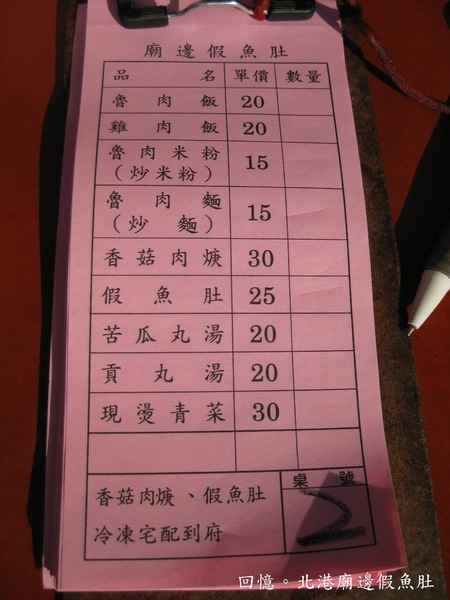 廟邊假魚肚
品名 單價 數量
魯肉飯 20
雞肉飯 20
魯肉米粉
(炒米粉) 15
魯肉麵
(炒麵) 15
香菇肉焿 30
假魚肚 25
苦瓜丸湯 20
貢丸湯 20
現燙青菜 30
香菇肉焿、假魚肚
冷凍宅配到府
桌號
2
回憶。北港廟邊假魚肚